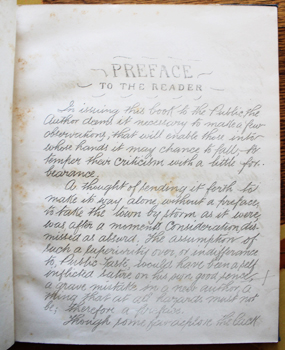 PREFACE
TO THE READER
In issuing this book to the Public, the
Author deems it necessary to make a few
observations, that will enable those into
whose hands it may chance to fall, to
temper their criticism with a little for-
bearance.
A thought of sending it forth to
make its way alone without a preface,
to take the town by storm as it were,
was after a moments Consideration dis-
missed as absurd. The assumption of
such a superiority over, or indifference
to Public Taste would have been a self
inflicted satire on his own good sense,
a grave mistake in a new author, a
thing that at all hazards must not
be; therefore a preface.
Though some